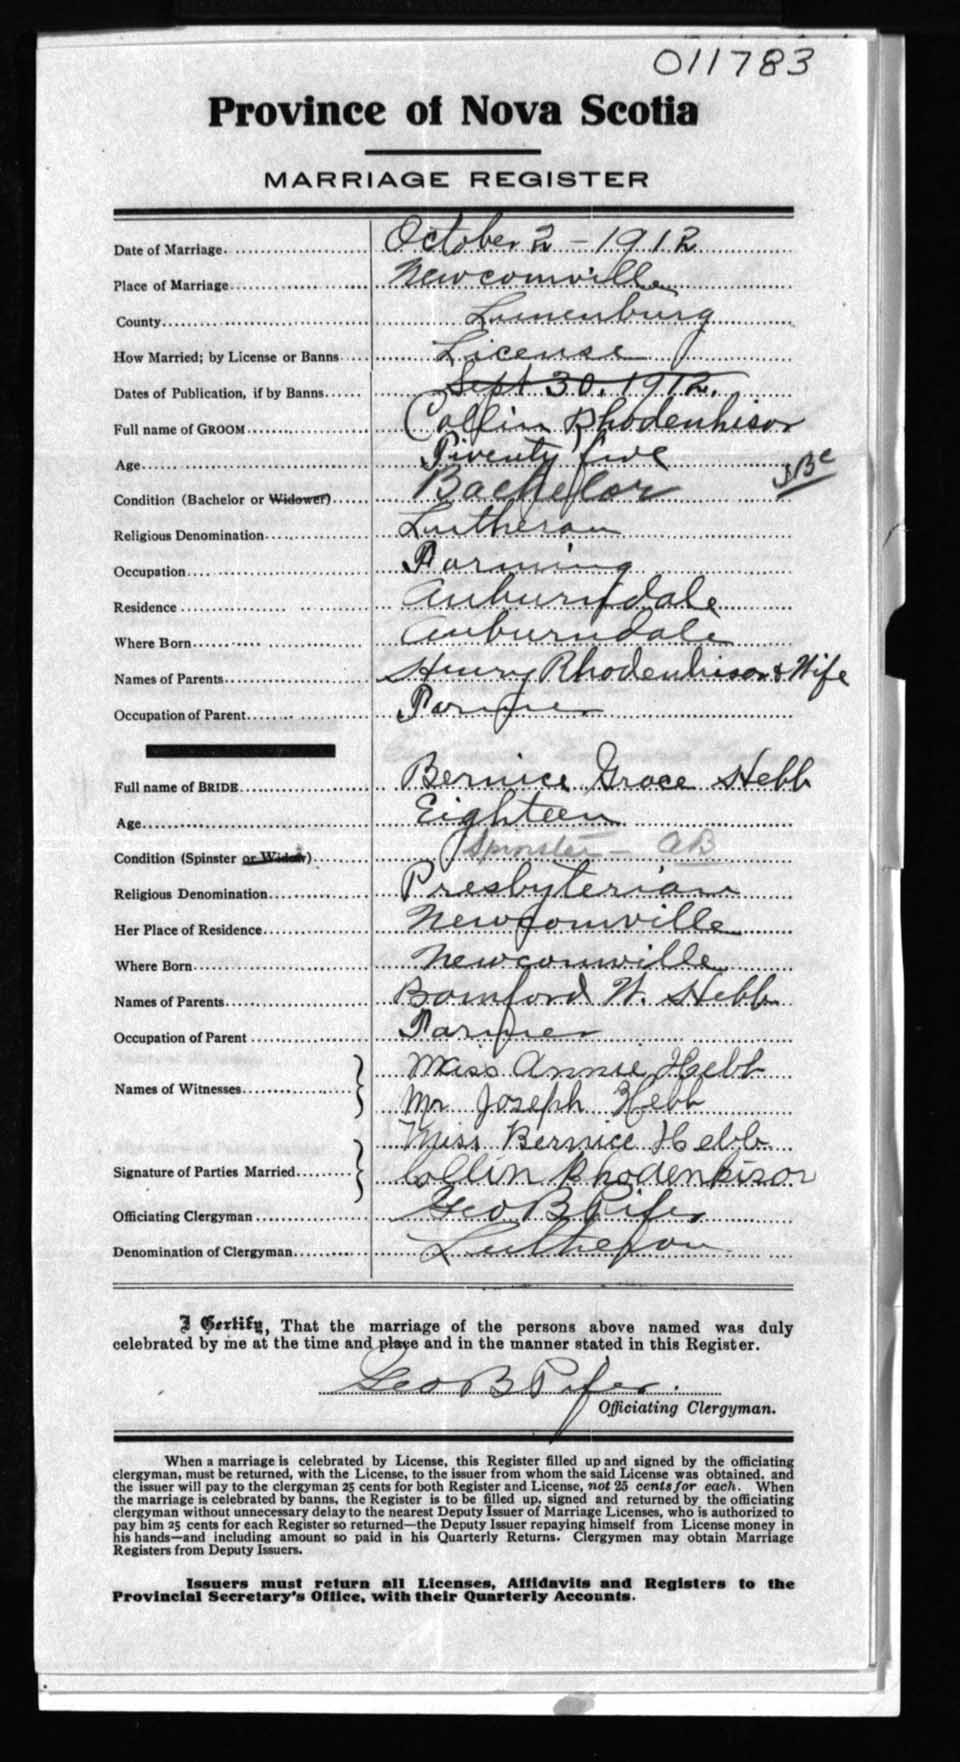 011783
Province of Nova Scotia
MARRIAGE REGISTER
Date of Marriage October 2 - 1912
Place of Marriage Newcomville
County Lunenburg
How Married; by License or Banns License
Dates of Publication, if by Banns Sept 30. 1912.
Full name of GROOM Collin Rhodenhisor
Age Twenty five
Condition (Bachelor or Widower) Bachelor
Religious Denomination Lutheran
Occupation Farming
Residence Auburndale
Where Born Auburndale
Names of Parents Henry Rhodenhisor & Wife
Occupation of Parent Farmer
Full name of BRIDE Bernice Grace Hebb
Age Eighteen
Condition (Spinster or Widow) Spinster - AB
Religious Denomination Presbyterian
Her Place of Residence Newcomville
Where Born Newcomville
Names of Parents Bamford W. Hebb
Occupation of Parent Farmer
Names of Witnesses Miss Annie Hebb
Mr Joseph Hebb
Miss Bernice Hebb
Signature of Parties Married Collin Rhodenhisor
Officiating Clergyman Geo B Pifer
Denomination of Clergyman Lutheran
I Certify, That the marriage of the persons above named was duly
celebrated by me at the time and place and in the manner stated in this Register.
Geo B Pifer.
Officiating Clergyman.
When a marriage is celebrated by License, this Register filled up and signed by the officiating
clergyman, must be returned, with the License, to the issuer from whom the said License was obtained, and
the issuer will pay to the clergyman 25 cents for both Register and License, not 25 cents for each. When
the marriage is celebrated by banns, the Register is to be filled up, signed and returned by the officiating
clergyman without unnecessary delay to the nearest Deputy Issuer of Marriage Licenses, who is authorized to
pay him 25 cents for each Register so returned—the Deputy Issuer repaying himself from License money in
his hands—and including amount so paid in his Quarterly Returns. Clergymen may obtain Marriage
Registers from Deputy Issuers.
Issuers must return all Licenses, Affidavits and Registers to the
Provincial Secretary's Office, with their Quarterly Accounts.